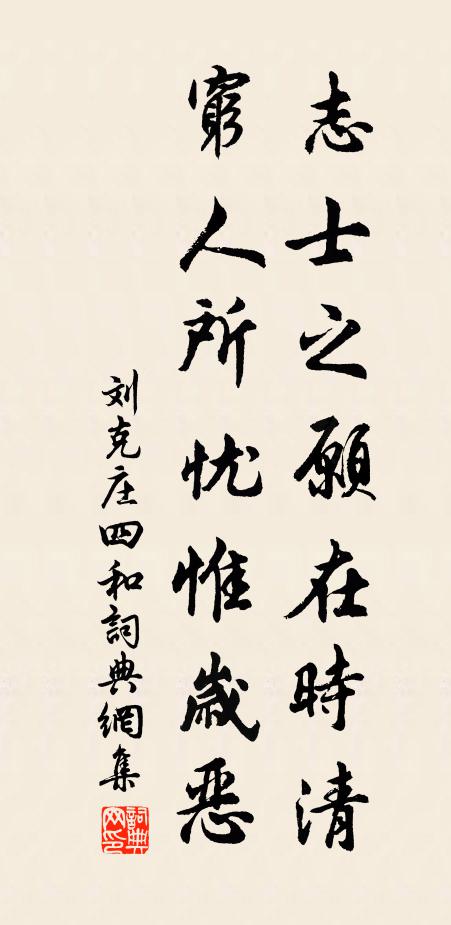 志士之願在時清
窮人所忧惟歲惡
刘克庄四和詞典網集
詞典網印